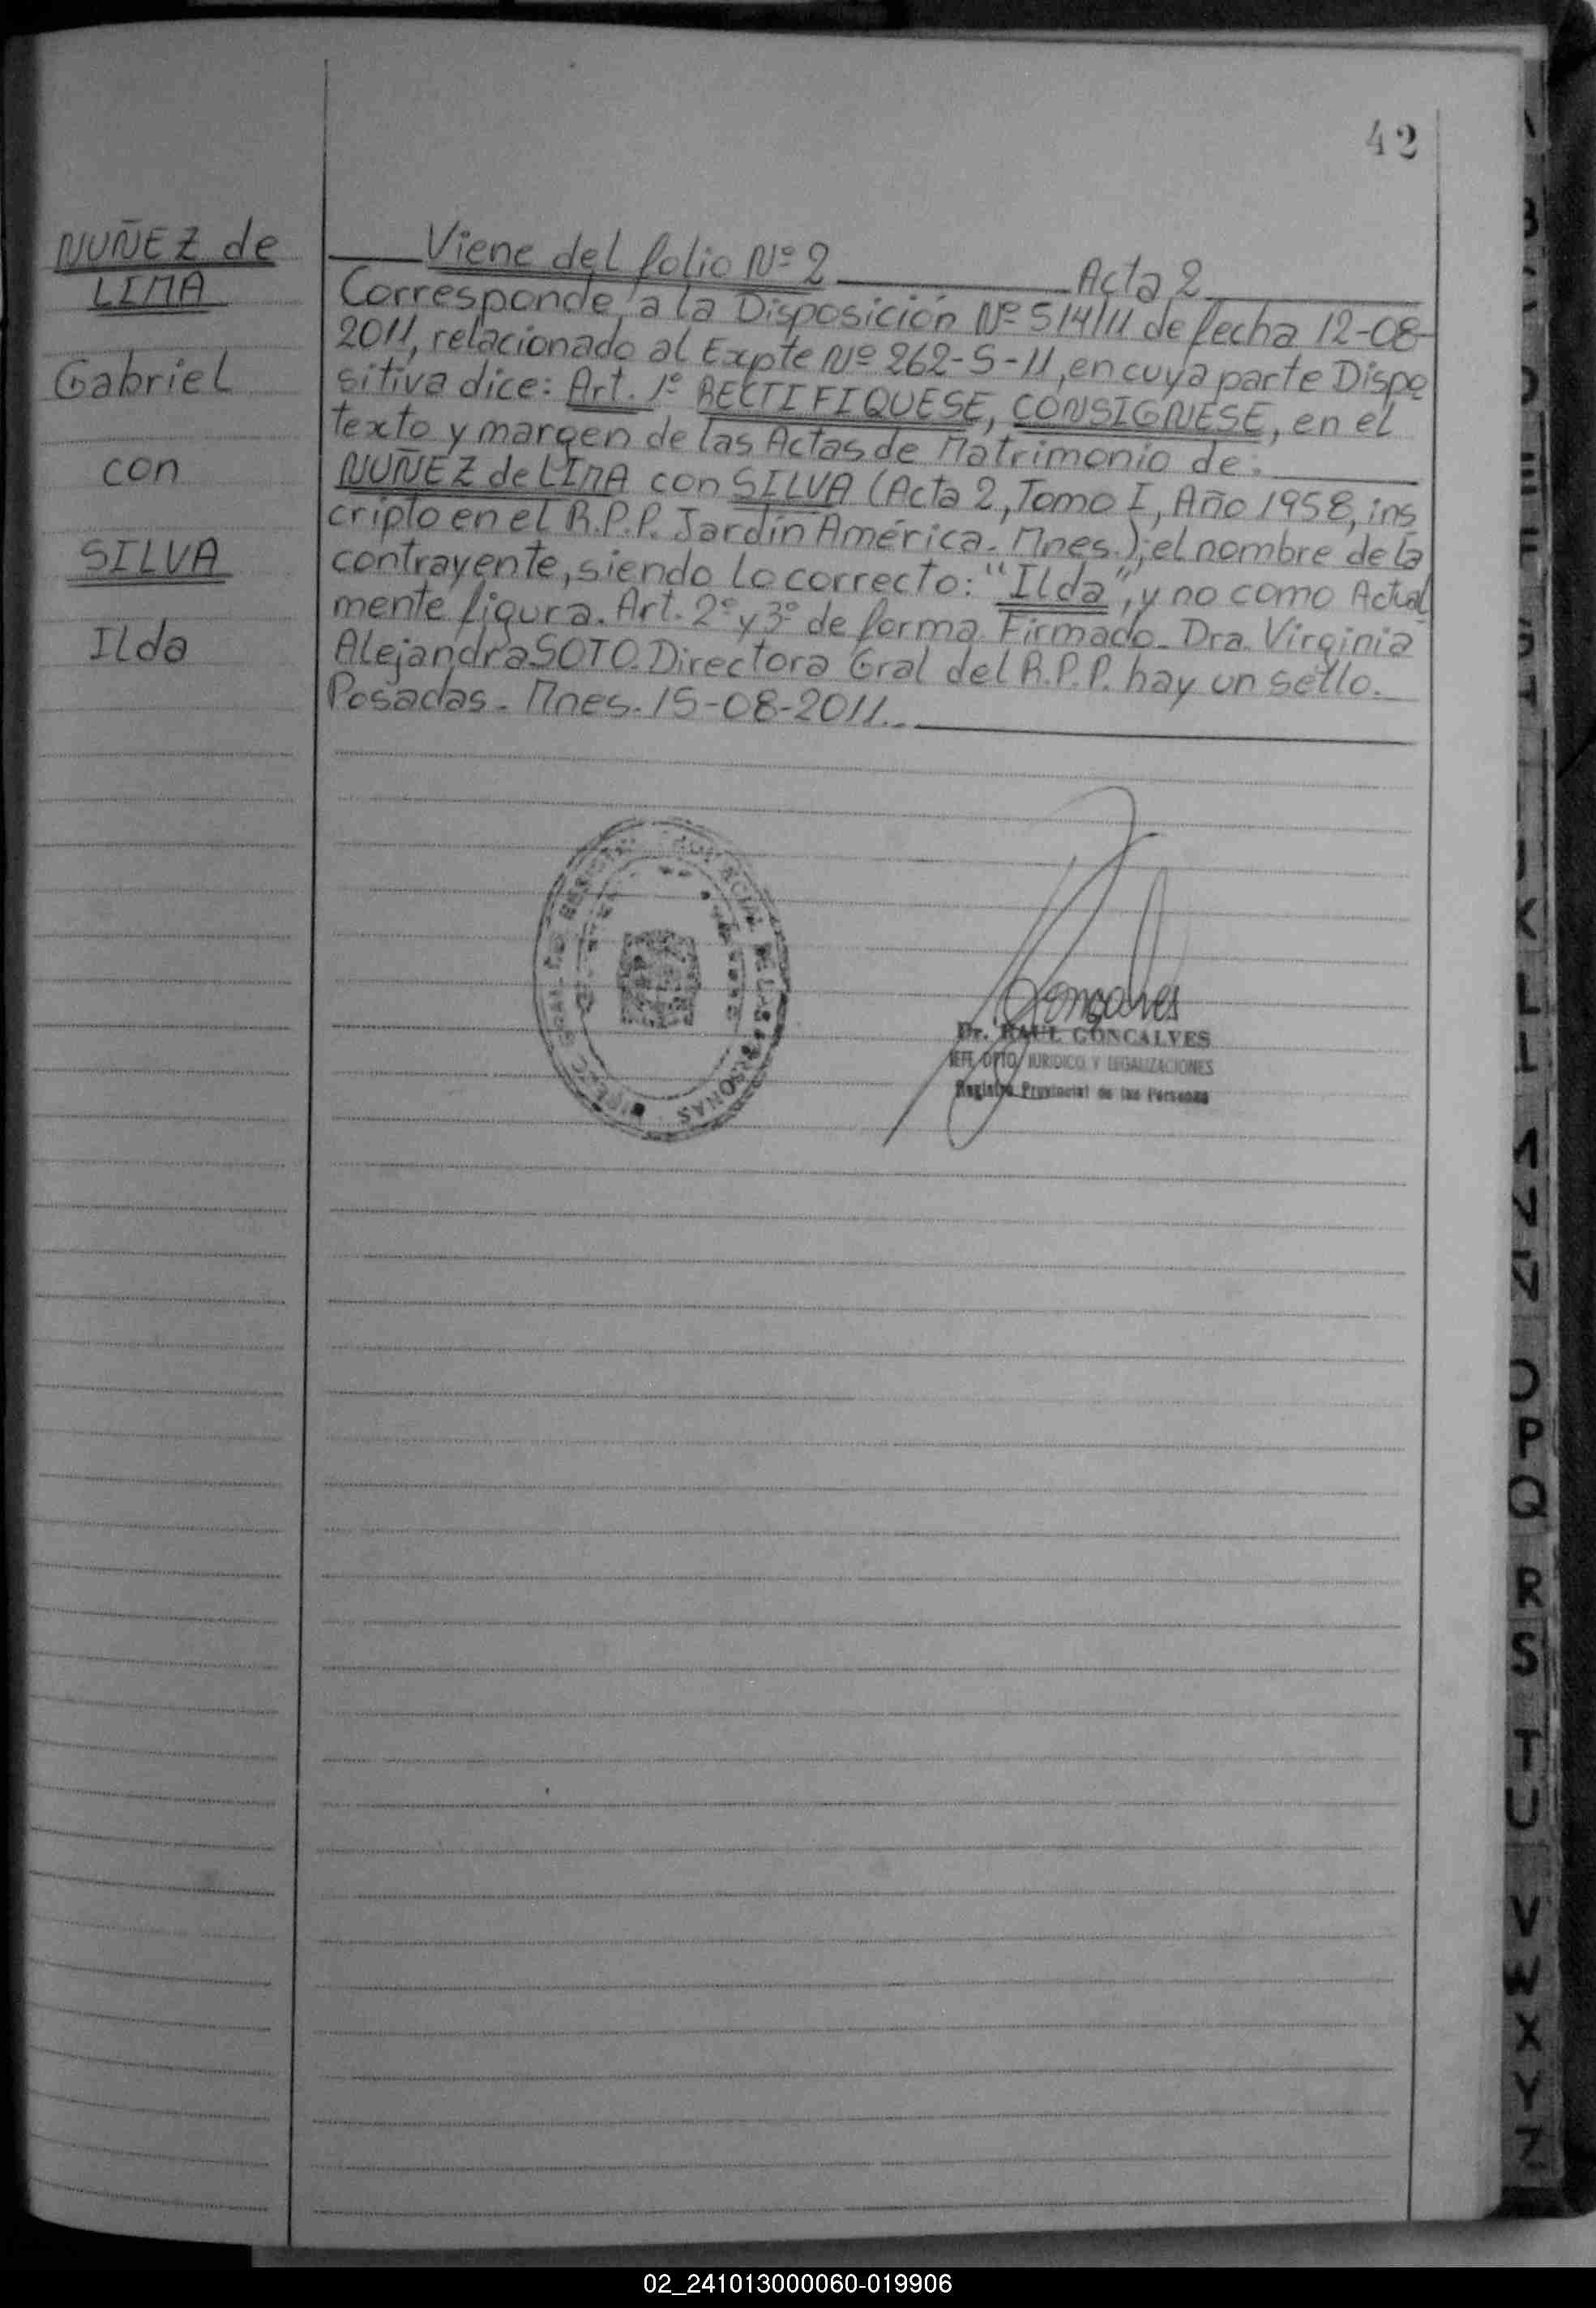 42
NUÑEZ de
LIMA
Gabriel
con
SILVA
Ilda
Viene del folio Nº 2 Acta 2
Corresponde a la Disposición Nº 514/11 de fecha 12-08-
2011, relacionado al Expte Nº 262-S-11, en cuya parte Dispo
sitiva dice: Art. 1º RECTIFIQUESE, CONSIGNESE, en el
texto y margen de las Actas de Matrimonio de:
NUÑEZ de LIMA con SILVA (Acta 2, Tomo I, Año 1958, ins
cripto en el R.P.P. Jardín América. Mnes.); el nombre de la
contrayente, siendo lo correcto: "Ilda", y no como Actual
mente figura. Art. 2º y 3º de forma. Firmado. Dra. Virginia
Alejandra SOTO. Directora Gral del R.P.P. hay un sello.
Posadas. Mnes. 15-08-2011.
Goncalves
Dr. RAUL GONCALVES
JEFE DPTO. JURIDICO Y LEGALIZACIONES
Registro Provincial de las Personas
K
L
O
P
Q
R
S
T
U
V
W
X
Y
Z
02_241013000060-019906